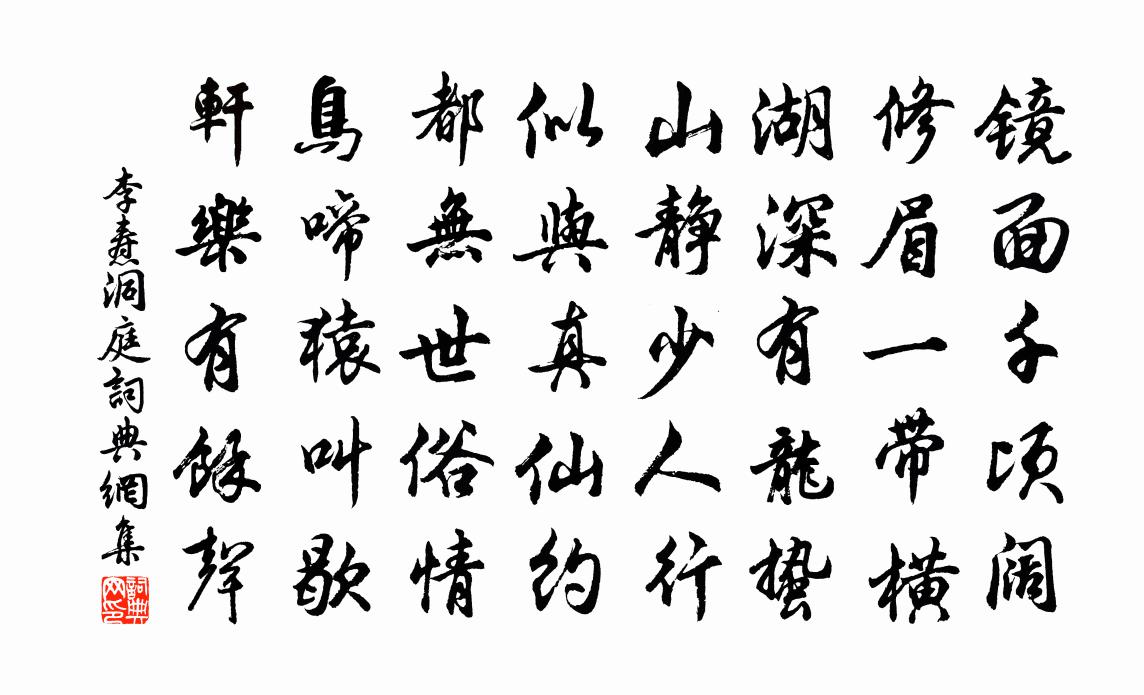 镜面千顷阔
修眉一带横
湖深有龍蛰
山静少人行
似與真仙约
都無世俗情
鳥啼猿叫歇
軒樂有餘聲
李燾洞庭詞典網集
詞典網印